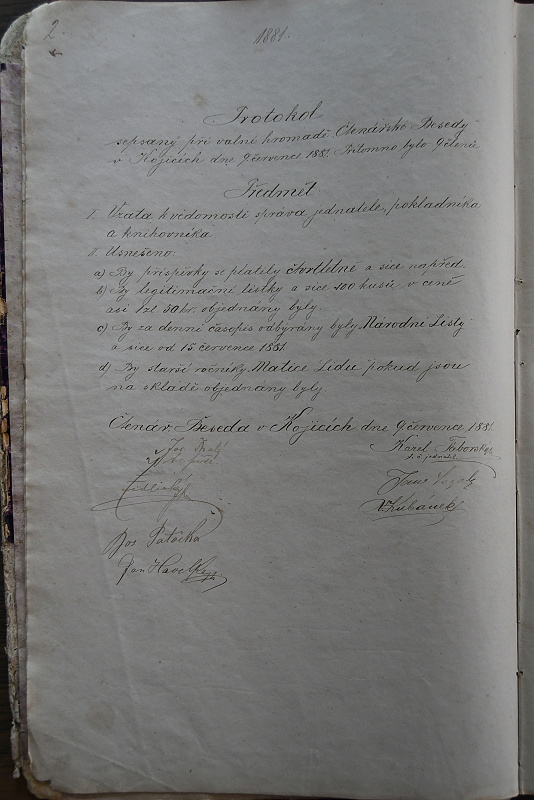 2.
1881.
Protokol
sepsaný při valní hromadě Čtenářské Besedy
v Kojicích dne 9 července 1881. Přítomno bylo 9 členů
Předmět
I. Vzata k vědomosti správa jednatele, pokladníka
a knihovníka
II. Usnešeno:
a) By příspěvky se platily čtvrtletně a sice napřed.
b) By legitimační lístky a sice 100 kusů v ceně
asi 1 zl 50 kr. objednány byly.
c) By za denní časopis odbýrány byly Národní Listy
a sice od 15. července 1881.
d) By starší ročníky Matice Lidu pokud jsou
na skladě objednány byly
Čtenář. Beseda v Kojicích dne 9 července 1881.
Karel Táborský
t. č. jednatel
Jos
V. Kubánek
Jos Patočka
Jan Havel